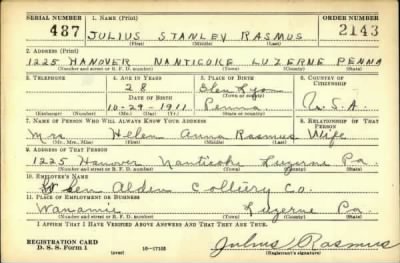 SERIAL NUMBER 1. NAME (Print) ORDER NUMBER
487 JULIUS STANLEY RASMUS 2143
(First) (Middle) (Last)
2. ADDRESS (Print)
1225 HANOVER NANTICOKE LUZERNE PENNA
(Number and street or R. F. D. number) (Town) (County) (State)
3. TELEPHONE 4. AGE IN YEARS 5. PLACE OF BIRTH 6. COUNTRY OF CITIZENSHIP
28 Glen Lyon
(Town or county)
DATE OF BIRTH
10-29-1911 Penna U.S.A.
(Exchange) (Number) (Mo.) (Day) (Yr.) (State or country)
7. NAME OF PERSON WHO WILL ALWAYS KNOW YOUR ADDRESS 8. RELATIONSHIP OF THAT PERSON
Mrs Helen Anna Rasmus Wife
(Mr., Mrs., Miss) (First) (Middle) (Last)
9. ADDRESS OF THAT PERSON
1225 Hanover Nanticoke Luzerne Pa.
(Number and street or R. F. D. number) (Town) (County) (State)
10. EMPLOYER'S NAME
Glen Alden Colliery Co.
11. PLACE OF EMPLOYMENT OR BUSINESS
Wanamie Luzerne Pa.
(Number and street or R. F. D. number) (Town) (County) (State)
I AFFIRM THAT I HAVE VERIFIED ABOVE ANSWERS AND THAT THEY ARE TRUE.
REGISTRATION CARD
D. S. S. Form 1 (over) 16-17105 Julius Rasmus
(Registrant's signature)